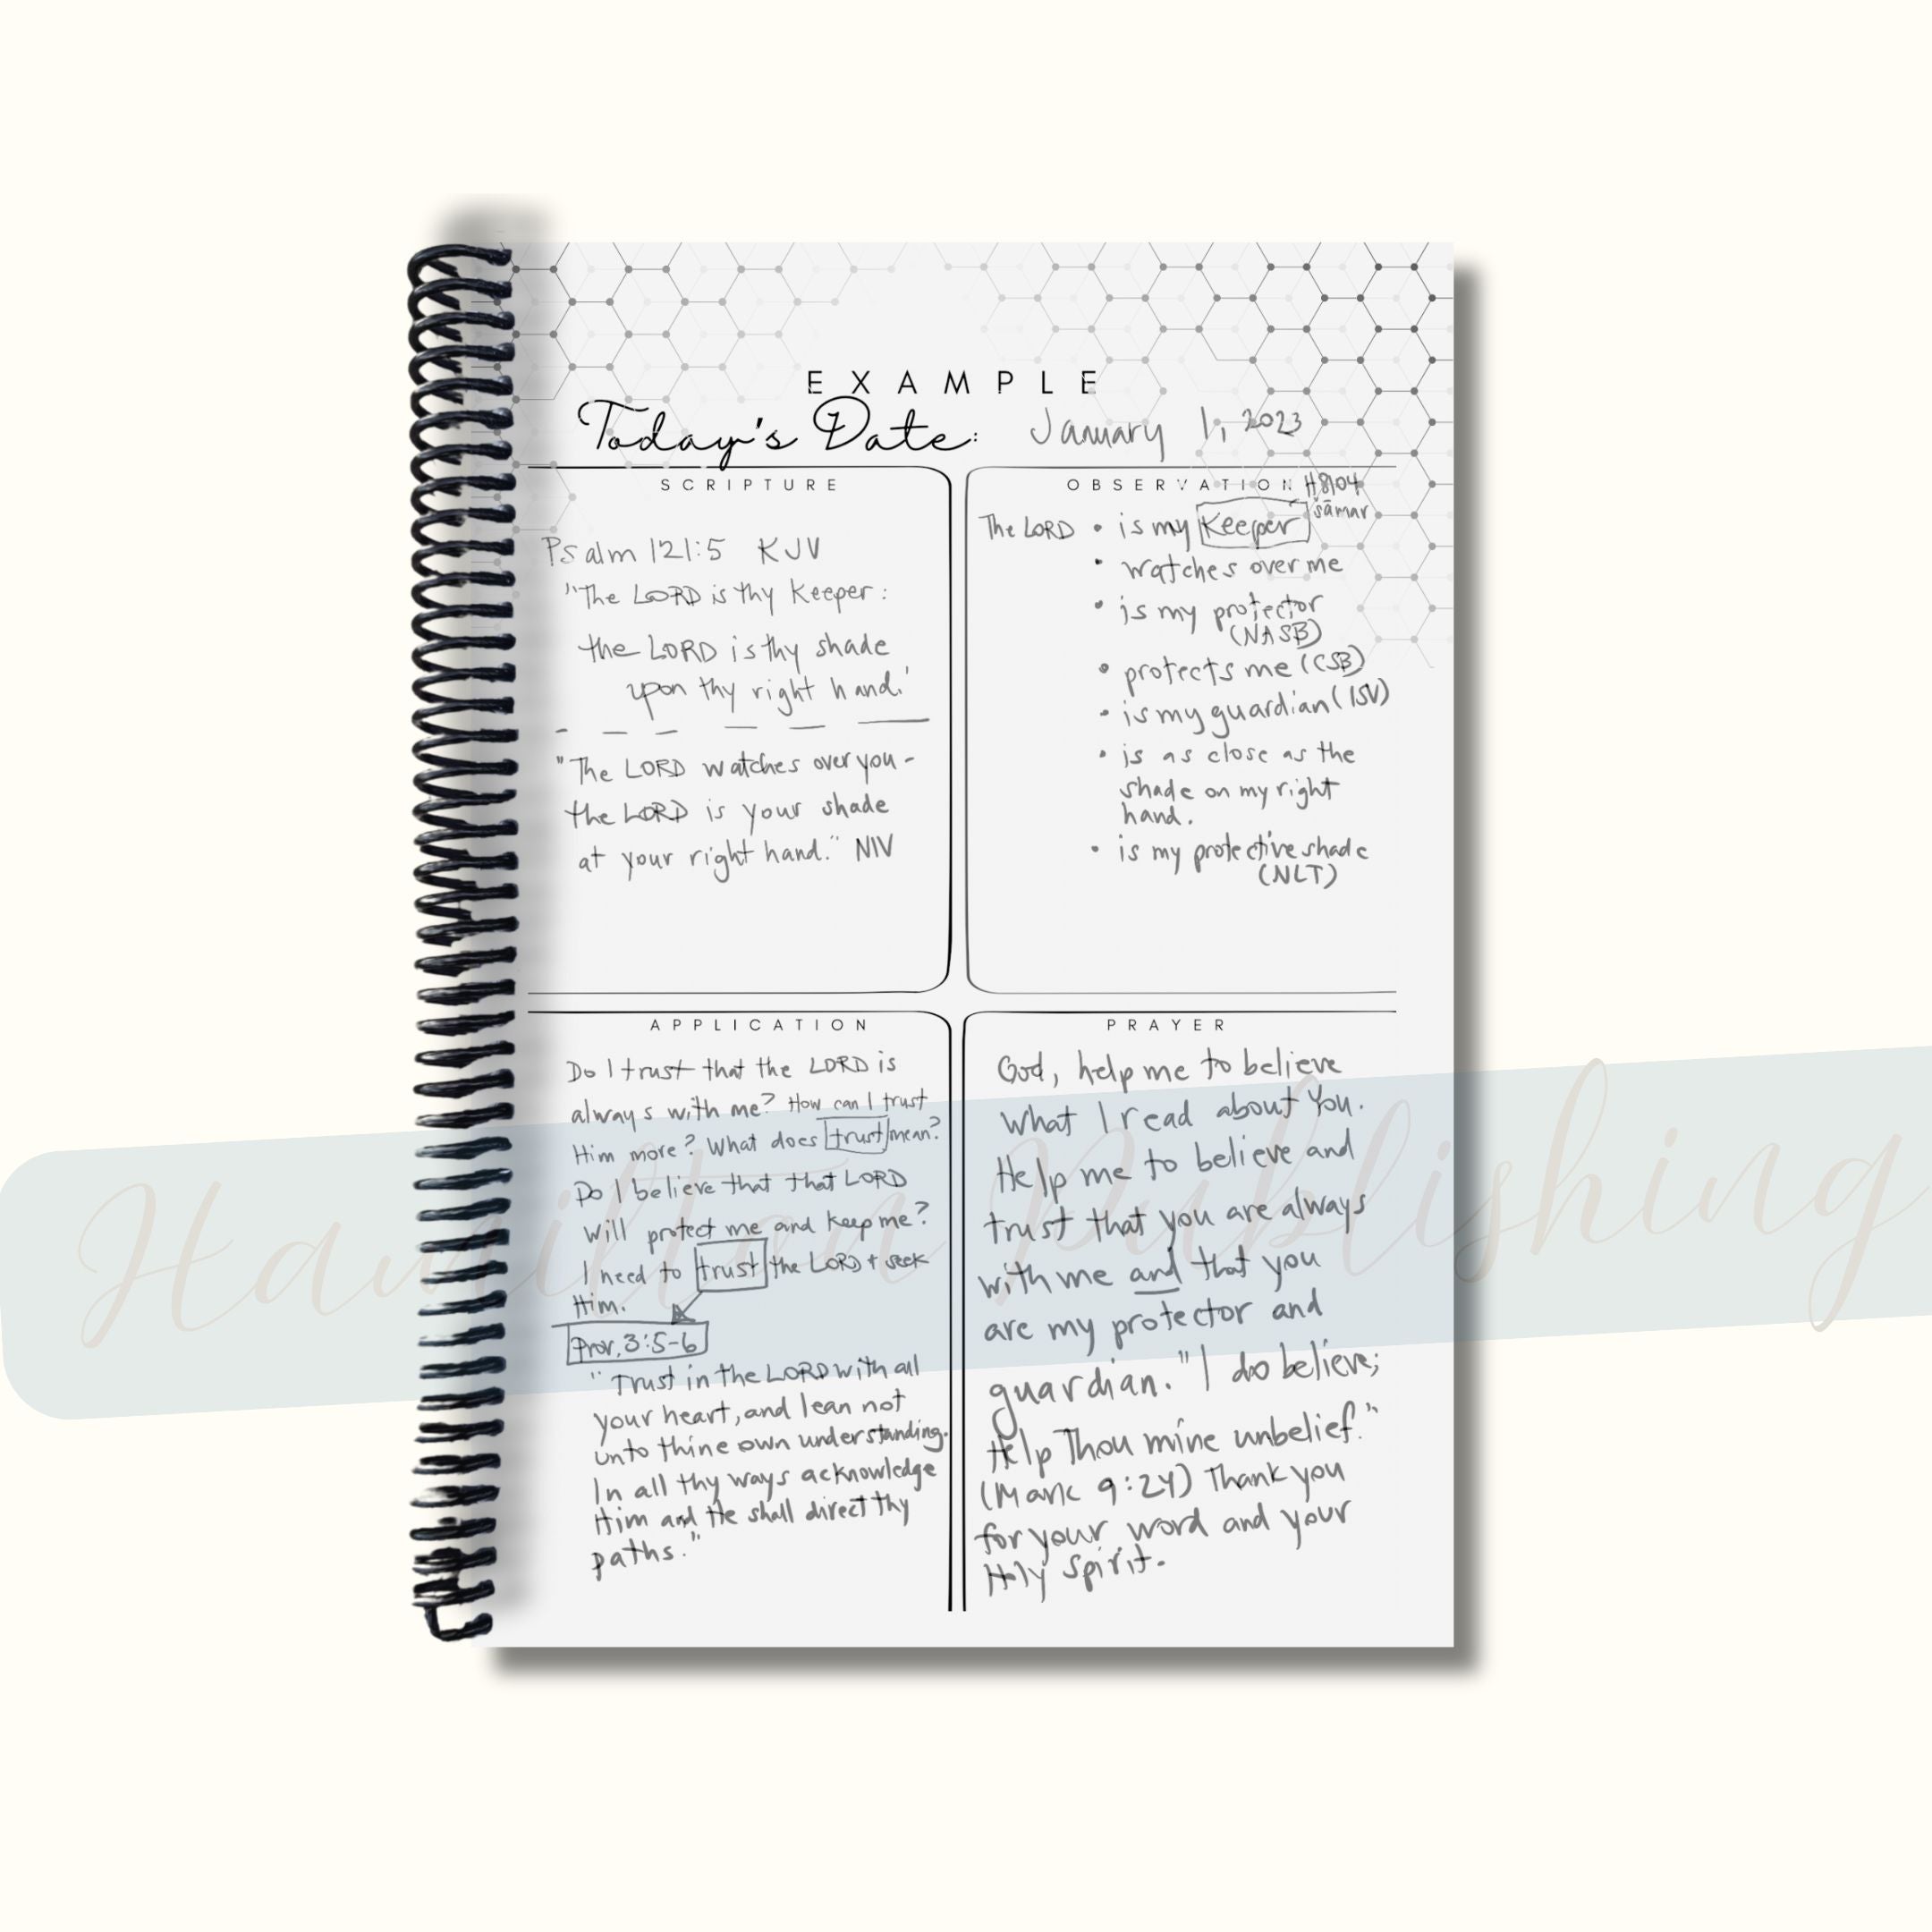 EXAMPLE
Today's Date: January 1, 2023
SCRIPTURE
Psalm 121:5 KJV
"The LORD is thy Keeper:
the LORD is thy shade
upon thy right hand."
"The LORD watches over you-
the LORD is your shade
at your right hand." NIV
OBSERVATION H8104
šāmar
The LORD • is my Keeper
• watches over me
• is my protector
(NASB)
• protects me (CSB)
• is my guardian (ISV)
• is as close as the
shade on my right
hand.
• is my protective shade
(NLT)
APPLICATION
Do I trust that the LORD is
always with me? How can I trust
Him more? What does trust mean?
Do I believe that that LORD
will protect me and keep me?
I need to trust the LORD + seek
Him.
Prov. 3:5-6
"Trust in the LORD with all
your heart, and lean not
unto thine own understanding.
In all thy ways acknowledge
Him and He shall direct thy
paths."
PRAYER
God, help me to believe
what I read about You.
Help me to believe and
trust that you are always
with me and that you
are my protector and
guardian. "I do believe;
Help Thou mine unbelief."
(Mark 9:24) Thank you
for your word and your
Holy Spirit.
Hamilton Publishing